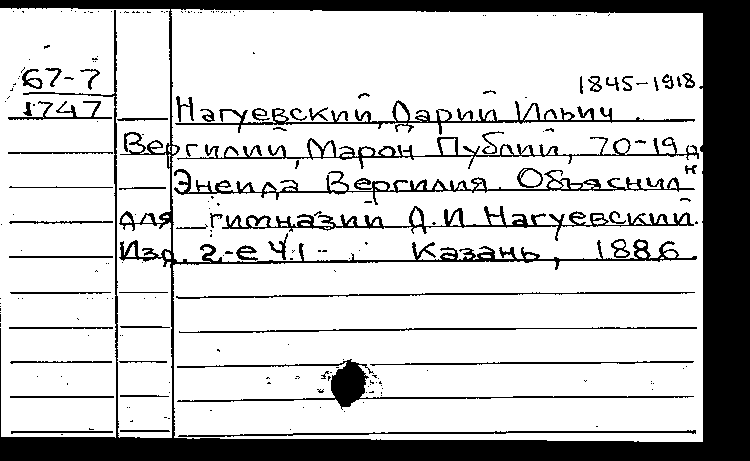 67-7
1845-1918.
1747
Нагуевский, Дарий Ильич.
Вергилий, Марон Публий, 70-19 д.
н.
Энеида Вергилия. Объяснил
для гимназий Д.И. Нагуевский.
Изд. 2-е Ч.1 - . Казань, 1886.